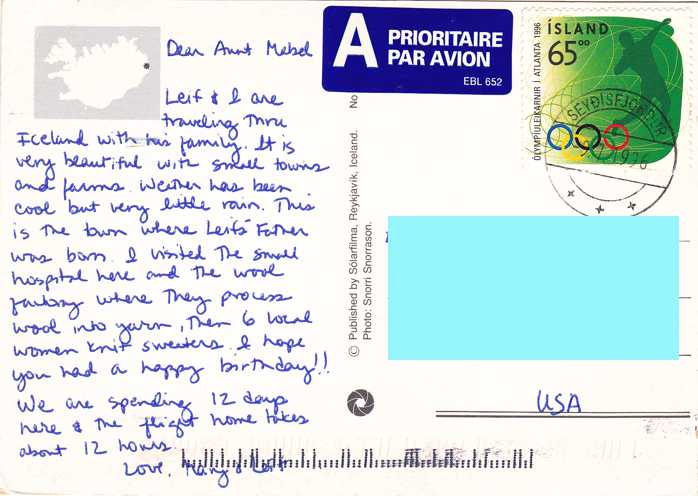 Dear Aunt Mabel
Leif & I are
traveling thru
Iceland with his family. It is
very beautiful with small towns
and farms. Weather has been
cool but very little rain. This
is the town where Leifs' Father
was born. I visited the small
hospital here and the wool
factory where they process
wool into yarn, then 6 local
women knit sweaters. I hope
you had a happy birthday!!
We are spending 12 days
here & the flight home takes
about 12 hours
Love, Mary & Leif
A PRIORITAIRE
PAR AVION
EBL 652
ÍSLAND
65⁰⁰
ÓLYMPÍULEIKARNIR Í ATLANTA 1996
SEYÐISFJÖRÐUR
1996
No
© Published by Sólarfilma, Reykjavík, Iceland.
Photo: Snorri Snorrason.
USA